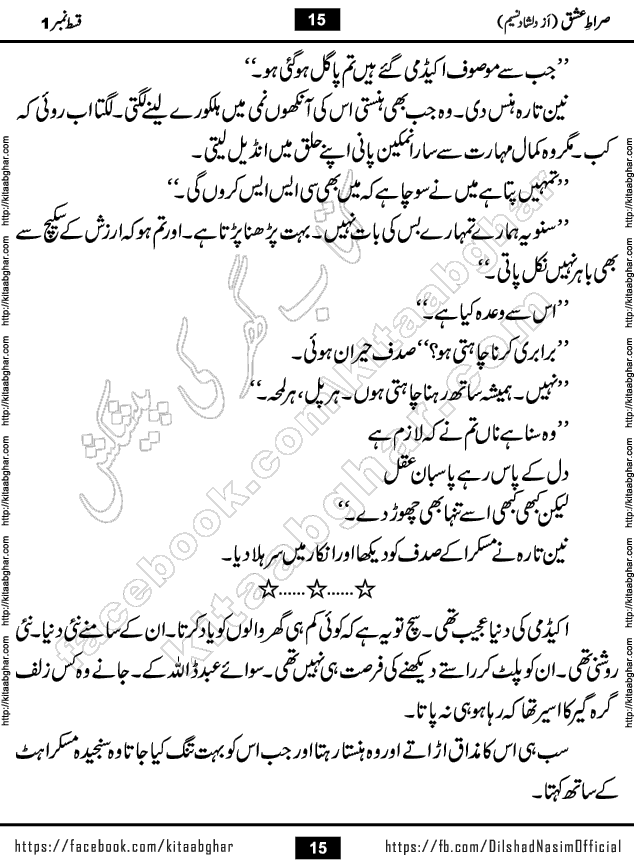 صراطِ عشق (از دلشاد نسیم)
15
قسط نمبر 1
’’جب سے موصوف اکیڈمی گئے ہیں تم پاگل ہو گئی ہو۔‘‘
نین تارہ ہنس دی۔ وہ جب بھی ہنستی اس کی آنکھوں نمی میں ہلکورے لینے لگتی۔ لگتا اب روئی کہ
کب۔ مگر وہ کمال مہارت سے سارا نمکین پانی اپنے حلق میں انڈیل لیتی۔
’’تمہیں پتا ہے میں نے سوچا ہے کہ میں بھی سی ایس ایس کروں گی۔‘‘
’’سنو یہ ہمارے تمہارے بس کی بات نہیں۔ بہت پڑھنا پڑتا ہے۔ اور تم ہو کہ ارزش کے سکیچ سے
بھی باہر نہیں نکل پاتی۔‘‘
’’اس سے وعدہ کیا ہے۔‘‘
’’برابری کرنا چاہتی ہو؟‘‘ صدف حیران ہوئی۔
’’نہیں۔ ہمیشہ ساتھ رہنا چاہتی ہوں۔ ہر پل، ہر لمحہ۔‘‘
’’وہ سنا ہے ناں تم نے کہ لازم ہے
دل کے پاس رہے پاسبان عقل
لیکن کبھی کبھی اسے تنہا بھی چھوڑ دے۔‘‘
نین تارہ نے مسکرا کے صدف کو دیکھا اور انکار میں سر ہلا دیا۔
☆......☆......☆
اکیڈمی کی دنیا عجیب تھی۔ سچ تو یہ ہے کہ کوئی کم ہی گھر والوں کو یاد کرتا۔ ان کے سامنے نئی دنیا۔ نئی
روشنی تھی۔ ان کو پلٹ کر راستے دیکھنے کی فرصت ہی نہیں تھی۔ سوائے عبداللہ کے۔ جانے وہ کس زلف
گرہ گیر کا اسیر تھا کہ رہا ہو ہی نہ پاتا۔
سب ہی اس کا مذاق اڑاتے اور وہ ہنستا رہتا اور جب اس کو بہت تنگ کیا جاتا وہ سنجیدہ مسکراہٹ
کے ساتھ کہتا۔
کتاب گھر کی پیشکش
facebook.com/kitaabghar
kitaabghar.com
http://kitaabghar.com http://kitaabghar.com http://kitaabghar.com http://kitaabghar.com http://kitaabghar.com http://kitaabghar.com
http://kitaabghar.com http://kitaabghar.com http://kitaabghar.com http://kitaabghar.com http://kitaabghar.com http://kitaabghar.com
https://facebook.com/kitaabghar
15
https://fb.com/DilshadNasimOfficial